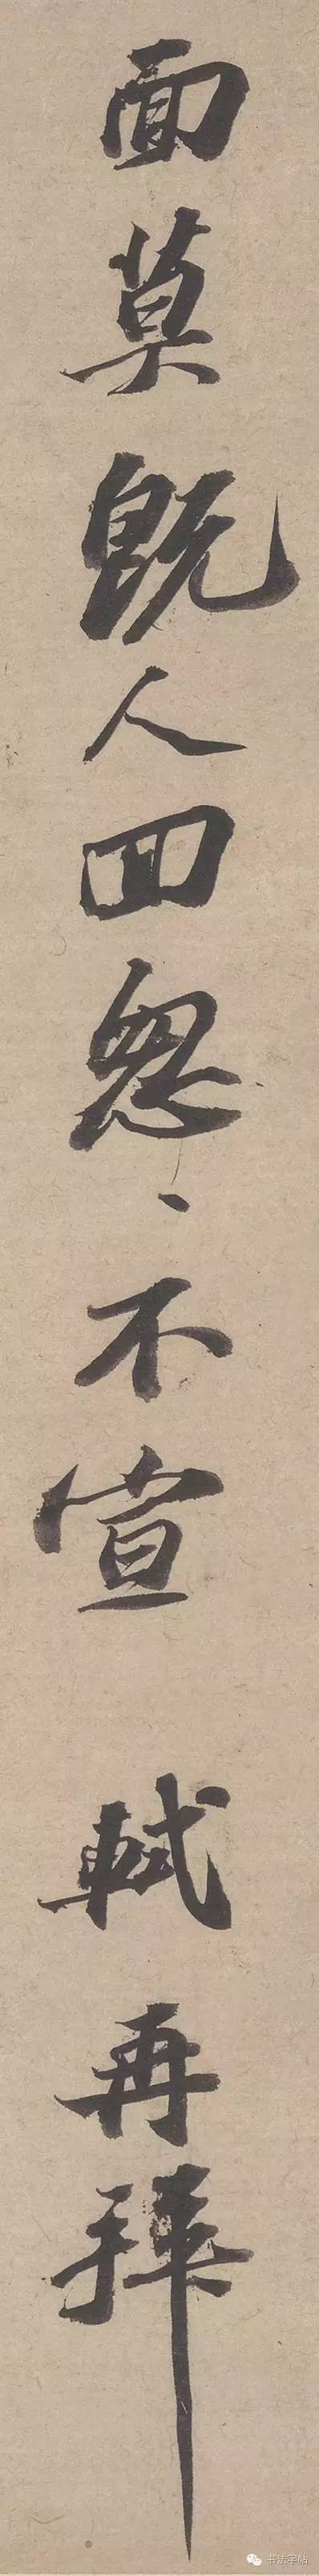 面莫既人回怱〻不宣 軾再拜
书法字帖